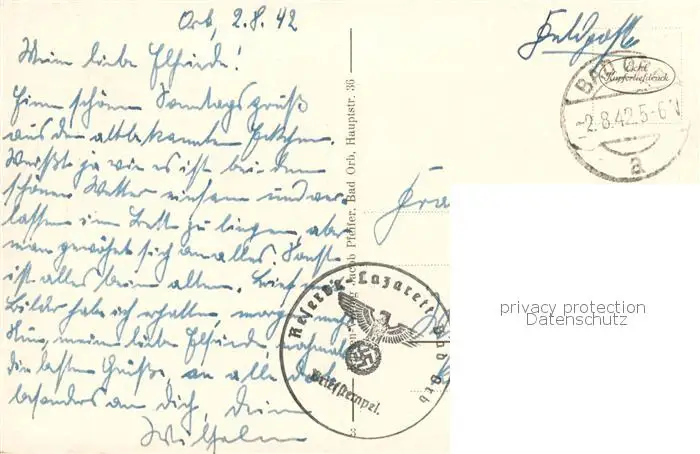 Orb, 2.8.42
Mein liebe Elfriede!
Einen schönen Sonntagsgruß
aus dem altbekannten Eckchen.
Weißt ja wie es ist bei dem
schönen Wetter einsam und ver-
lassen im Bett zu liegen, aber
man gewöhnt sich an alles. Sonst
ist alles beim alten. Brief
Bilder habe ich erhalten, morgen mehr
Nun, meine liebe Elfriede nochmals
die besten Grüße, an alle
besonders an dich, dein
Wilhelm
Jacob Pfeifer, Bad Orb, Hauptstr. 36
3
Feldpost
Echt
Kupfertiefdruck
BAD ORB
-2.8.42.5-6
a
Reserve-Lazarett Bad Orb
Briefstempel.
privacy protection
Datenschutz